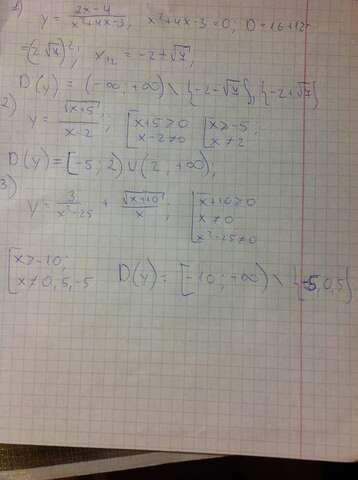 1) y = (2x-4)/(x²+4x-3), x²+4x-3=0; D=16+12=
=(2√7)²; x₁,₂ = -2±√7,
D(y) = (-∞; +∞) \ {-2-√7}, {-2+√7}
2) y = √(x+5)/(x-2); [x+5≥0 [x≥-5;
x-2≠0 x≠2
D(y)=[-5; 2) ∪ (2; +∞);
3) y = 3/(x²-25) + √(x+10)/x; [x+10≥0
x≠0
x²-25≠0
[x≥-10;
x≠0,5,-5 D(y) = [-10; +∞) \ {-5,0,5}